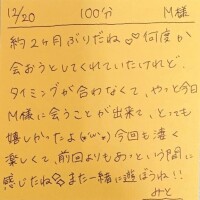 12/20 100分 M様
約2ヶ月ぶりだね♡♡何度か
会おうとしてくれていたけれど、
タイミングが合わなくて、やっと今日
M様に会うことが出来て、とっても
嬉しかったよ(*'ω'*)今回も凄く
楽しくて、前回よりもあっという間に
感じたね また一緒に遊ぼうね!!
みと